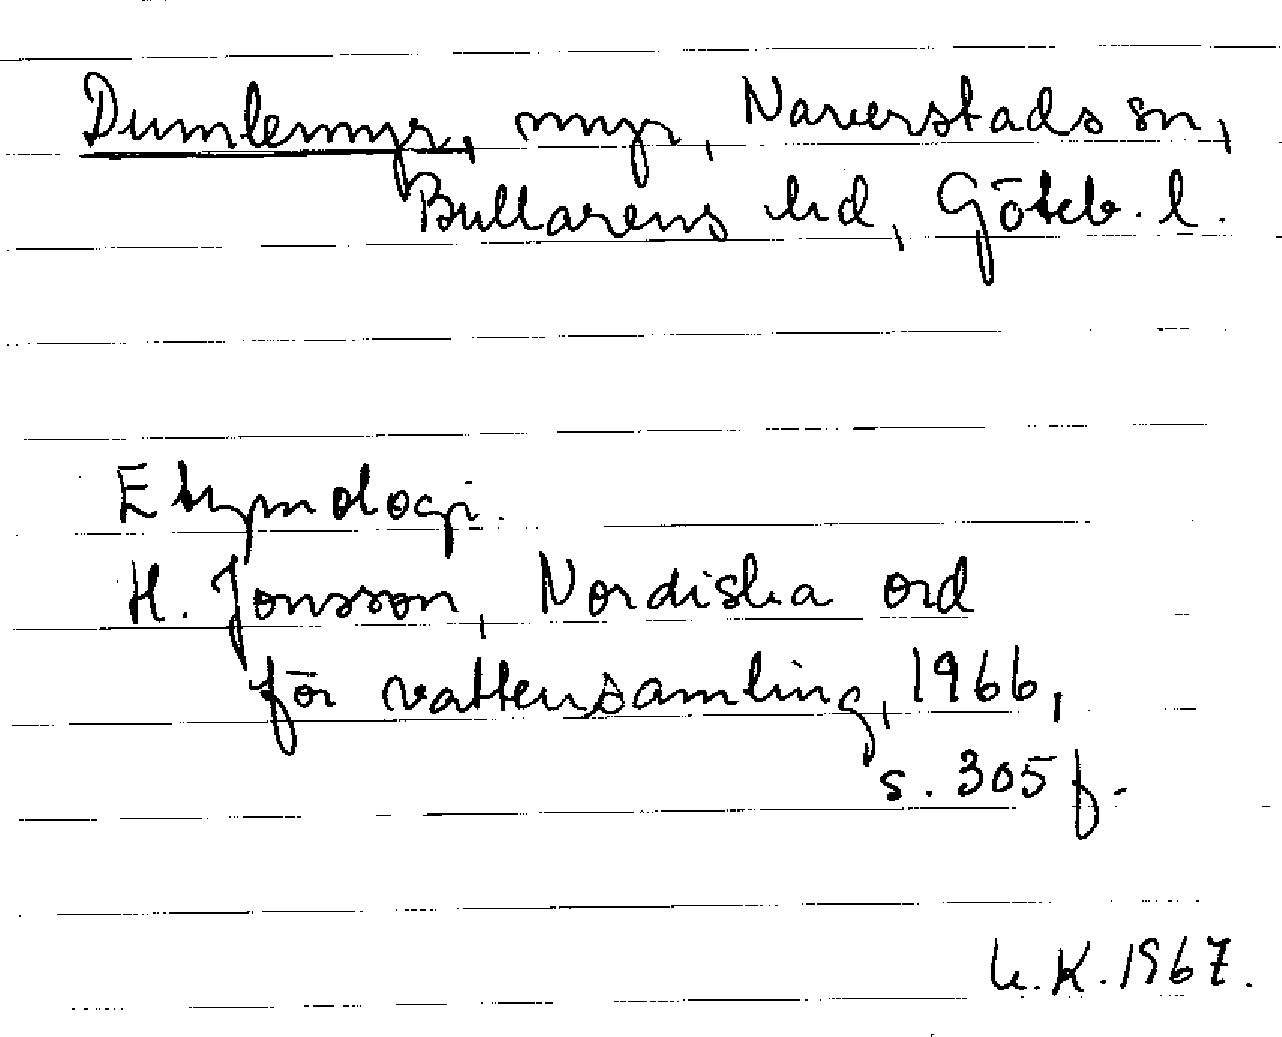 Dumlemyr, myr, Naverstads sn,
Bullarens hd, Göteb. l.
Etymologi.
H. Jonsson, Nordiska ord
för vattensamling, 1966,
s. 305 f.
K. 1967.